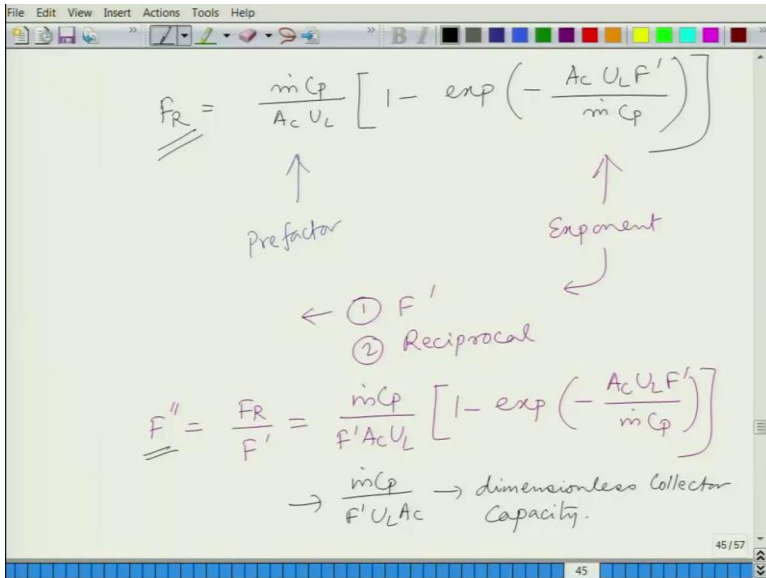 File Edit View Insert Actions Tools Help
F_R = ṁCp / (Ac UL) [1 - exp(- Ac UL F' / ṁ Cp)]
Prefactor Exponent
← ① F'
② Reciprocal
F'' = F_R / F' = ṁCp / (F' Ac UL) [1 - exp(- Ac UL F' / ṁ Cp)]
→ ṁCp / (F' UL Ac) → dimensionless Collector
Capacity.
45/57
45